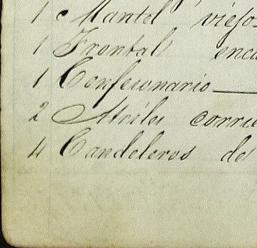 1 Mantel viejo
1 Frontal enca
1 Confecionario
2 Atriles corrie
4 Candeleros de